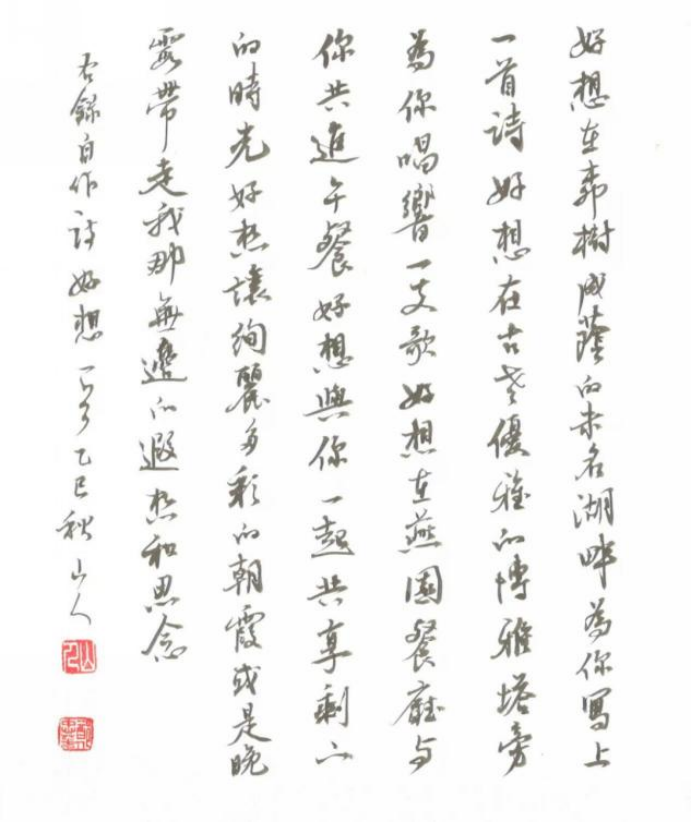 好想在樹成蔭的未名湖畔為你寫上
一首詩好想在古老優雅的博雅塔旁
為你唱響一支歌好想在燕園餐廳与
你共進午餐好想與你一起共享剩下
的時光好想讓絢麗多彩的朝霞或是晚
霞帶走我那無邊的遐想和思念
右錄自作詩好想一首乙巳秋山人